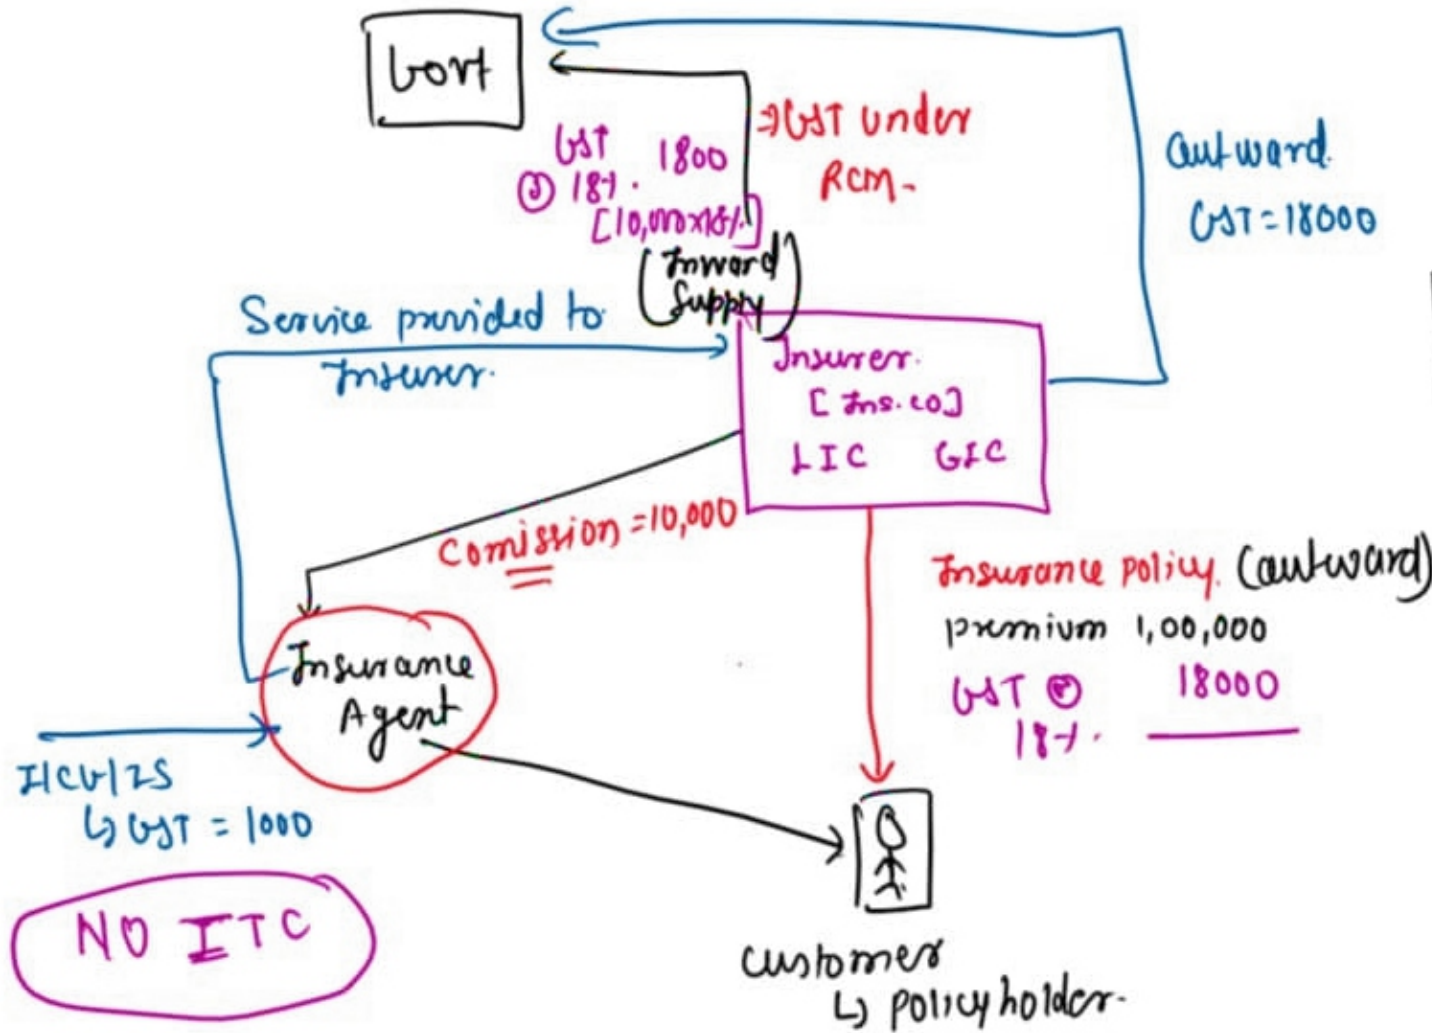 Govt
GST 1800
@ 18%.
[10,000x18%]
⇒ GST under
RCM-
outward.
GST = 18000
(Inward
Supply)
Service provided to
Insurer.
Insurer.
[Ins.co]
LIC GIC
Comission = 10,000
Insurance policy. (outward)
premium 1,00,000
GST @ 18000
18%.
Insurance
Agent
I/CG/IS
↳ GST = 1000
NO ITC
customer
↳ policyholder.